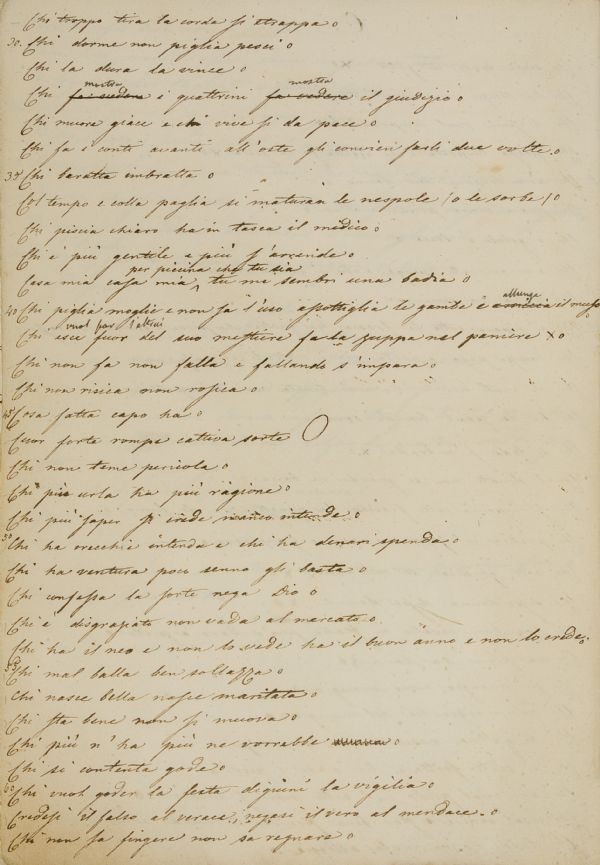 Chi troppo tira la corda si strappa o
30. Chi dorme non piglia pesci o
Chi la dura la vince o
mostra mostra
Chi fa vedere i quattrini fa vedere il giudizio o
Chi muore giace e chi vive si da pace o
Chi fa i conti avanti all'oste gli convien farli due volte. o
35 Chi baratta imbratta o
Col tempo e colla paglia si maturan le nespole (o le sorbe) o
Chi piscia chiaro ha in tasca il medico o
Chi è più gentile e più s'arrende o
per piccina che tu sia
Cosa mia casa mia, tu me sembri una badia o
allunga
40 Chi piglia moglie e non sa l'uso assottiglia le gambe e il muso
vuol far l'altrui
Chi esce fuor del suo mestiere fa la zuppa nel paniere X o
Chi non fa non falla e fallando s'impara o
Chi non risica non rosica o
45 Cosa fatta capo ha o
Cuor forte rompe cattiva sorte O
Chi non teme pericola o
Chi più urla ha più ragione o
Chi più saper si crede manco intende o
50 Chi ha orecchie intenda e chi ha denari spenda o
Chi ha ventura poco senno gli basta o
Chi confessa la sorte nega Dio o
Chi è disgraziato non vada al mercato o
Chi ha il neo e non lo vede ha il buon anno e non lo crede. o
55 Chi mal balla ben sollazza o
Chi nasce bella nasce maritata o
Chi sta bene non si muova o
Chi più n'ha più ne vorrebbe o
Chi si contenta gode o
60 Chi vuol goder la festa digiuni la vigilia o
Credesi il falso al verace, negasi il vero al mendace. o
Chi non sa fingere non sa regnare o